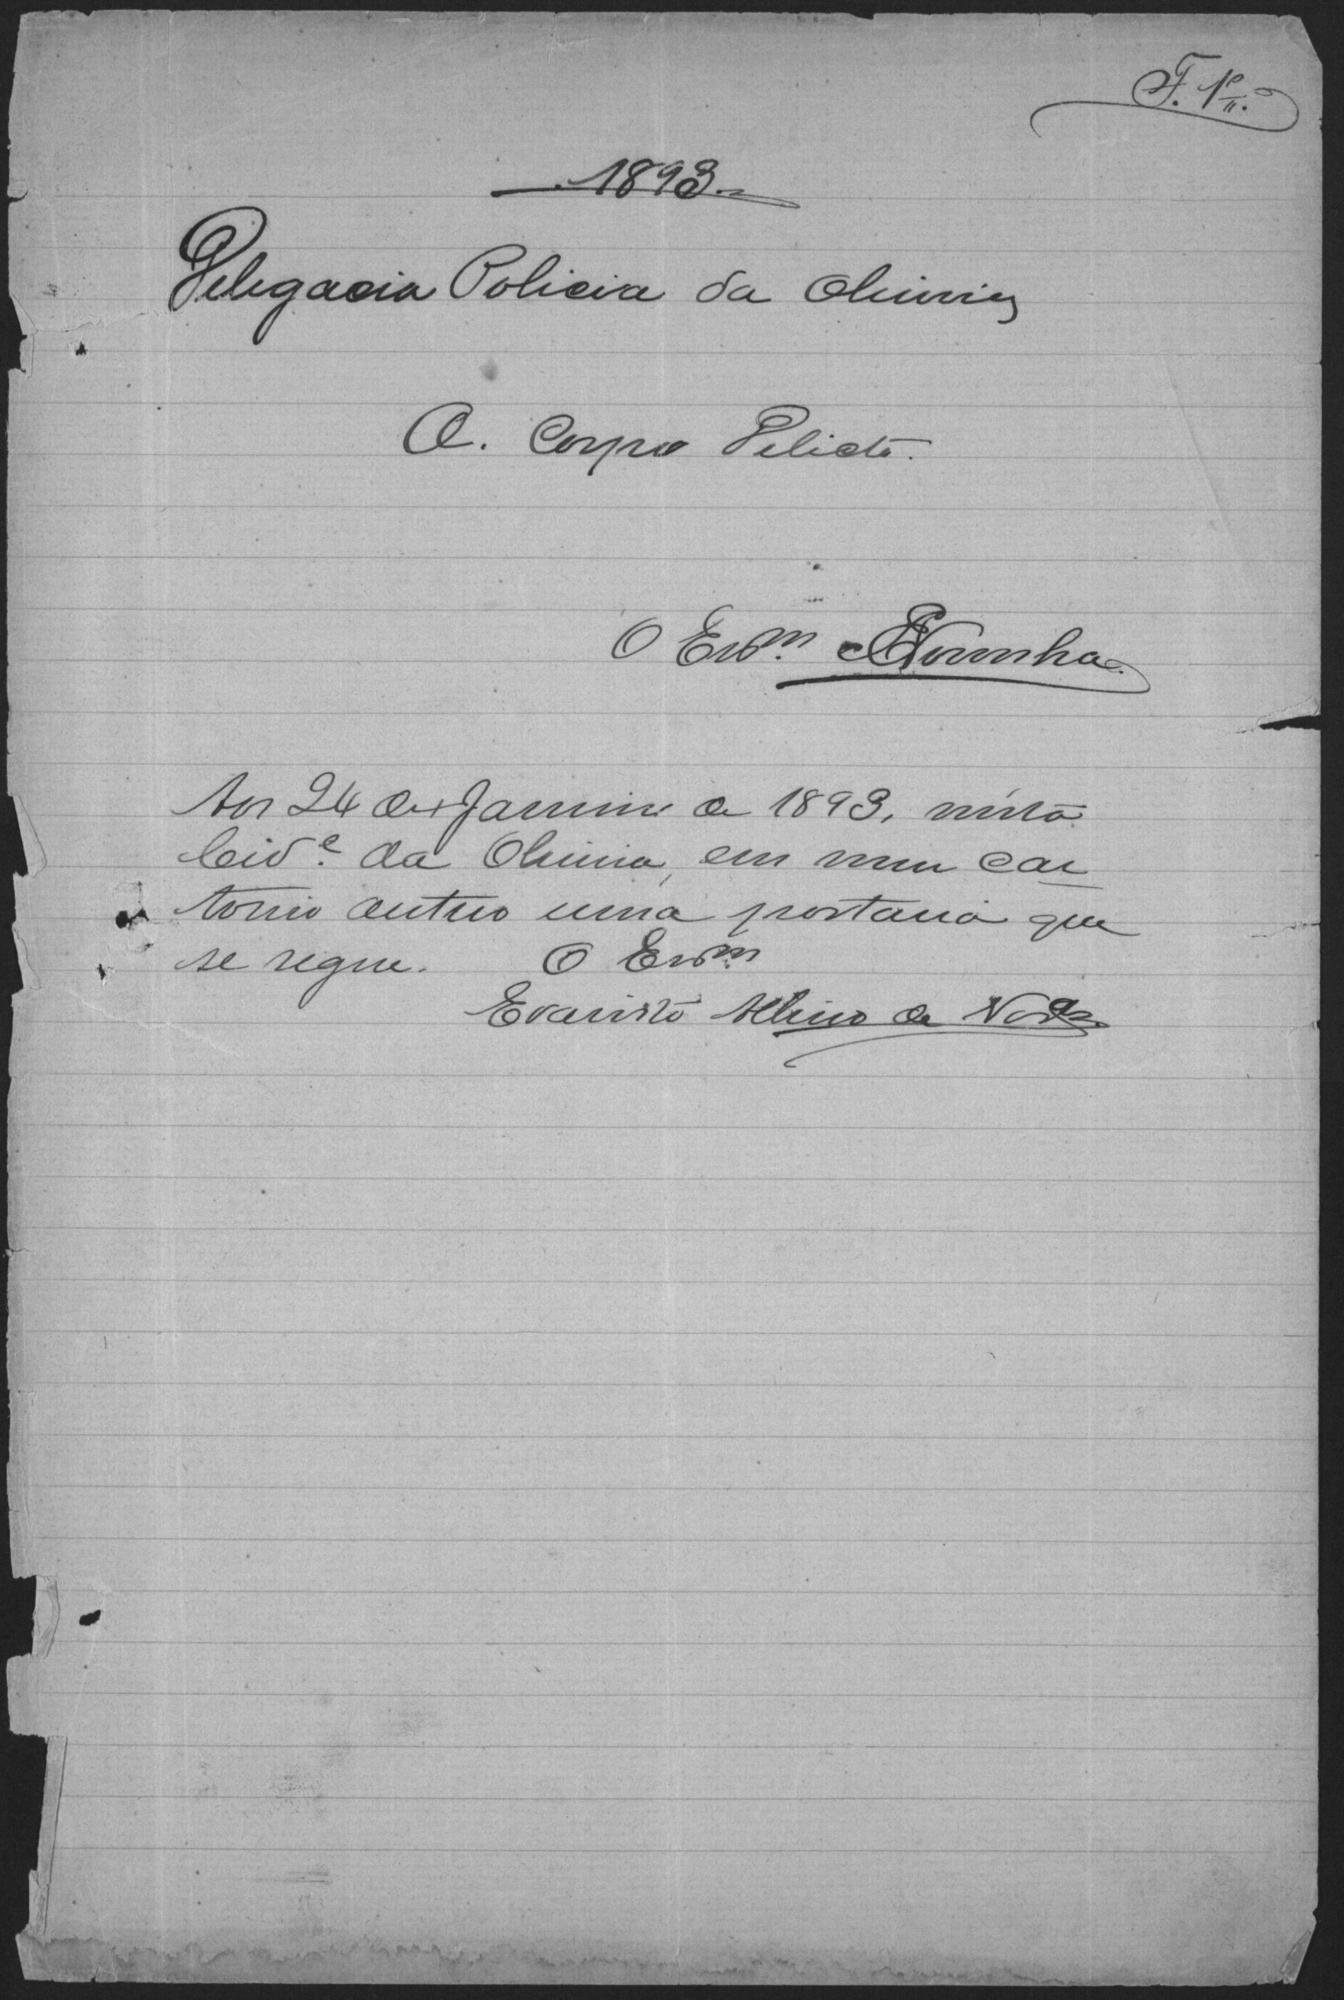 F. 1ª
1893
Delegacia Policia da Oliveira
A. Corpo Delicto.
O Escm. Noronha
Aos 24 de Janeiro de 1893, nésta
Cide. da Oliveira, em meu car
torio autuo uma portaria que
se segue. O Escm
Evaristo Albino de Norª